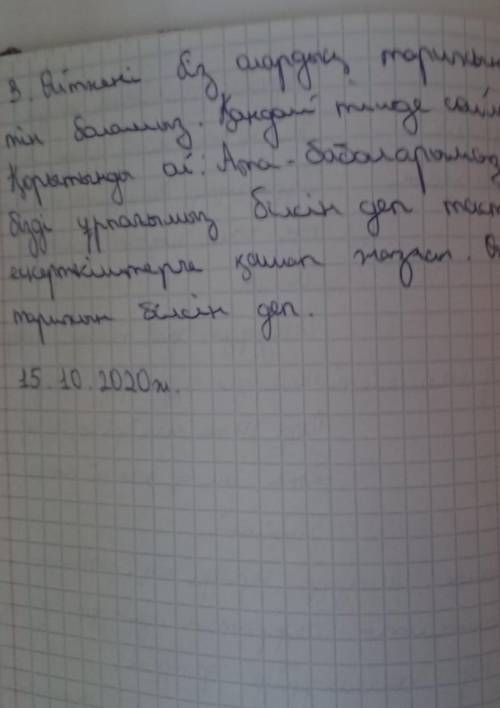 3. Өйткені біз олардың тарихын
тін боламыз. Қандай тілде сөйл
Қорытынды ой: Ата-бабаларымыз
бізді ұрпағымыз білсін деп таст
ескерткіштерге қашап жазған.
тарихын білсін деп.
15.10.2020ж.